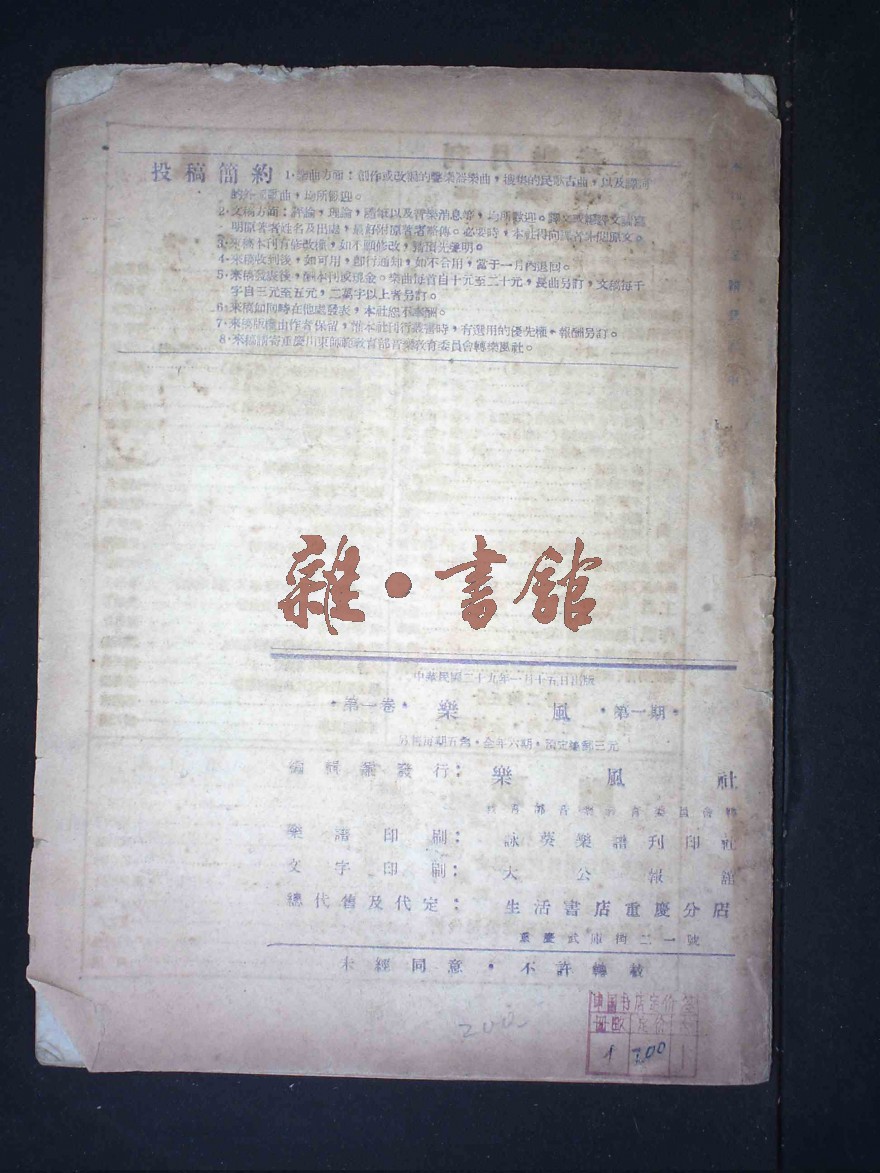 投稿簡約 1·歌曲方面：創作或改編的聲樂器樂曲，搜集的民歌古曲，以及譯詞
的外國歌曲，均所歡迎。
2·文稿方面：評論，理論，隨筆以及音樂消息等，均所歡迎。譯文或編譯文請寫
明原著者姓名及出處，最好附原著者略傳。必要時，本社得向譯者外借原文。
3·來稿本刊有修改權，如不願修改，請預先聲明。
4·來稿收到後，如可用，即行通知，如不合用，當于一月內退回。
5·來稿發表後，酬本刊或現金。樂曲每首自十元至二十元，長曲另訂，文稿每千
字自三元至五元，二萬字以上者另訂。
6·來稿如同時在他處發表，本社恕不奉酬。
7·來稿版權由作者保留，惟本社刊行叢書時，有選用的優先權，報酬另訂。
8·來稿請寄重慶川東師範教育部音樂教育委員會轉樂風社。
雜·書館
中華民國二十九年一月十五日出版
·第一卷· 樂風 ·第一期·
月刊每期五角·全年六期·預定連郵三元
編輯兼發行：樂風社
教育部音樂教育委員會轉
樂譜印刷：詠葵樂譜刊印社
文字印刷：大公報館
總代售及代定：生活書店重慶分店
重慶武庫街二一號
未經同意·不許轉載
册数 定价
1 7.00
200